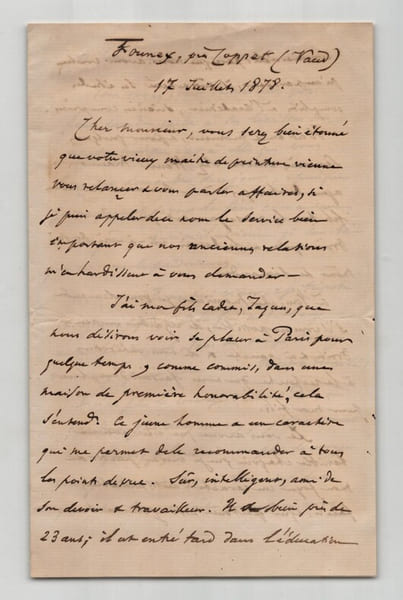 Founex, près Coppet (Vaud)
17 Juillet 1878.
Cher monsieur, vous serez bien étonné
que votre vieux maître de peinture vienne
vous relancer & vous parler affaires, si
je puis appeler de ce nom le service bien
important que nos anciennes relations
m'enhardissent à vous demander –
J'ai mon fils cadet, Jaques, que
nous désirons voir se placer à Paris pour
quelque temps, comme commis, dans une
maison de première honorabilité, cela
s'entend. Ce jeune homme a un caractère
qui me permet de le recommander à tous
les points de vue. Sûr, intelligent, ami de
son devoir & travailleur. Il a bien près de
23 ans; il est entré tard dans l'éducation